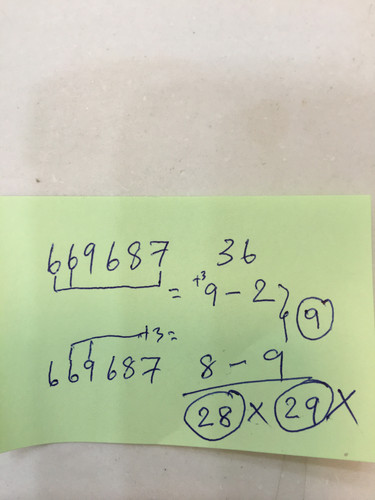 669687 36
= +3 9-2 9
+3=
669687 8-9
28 x 29 x